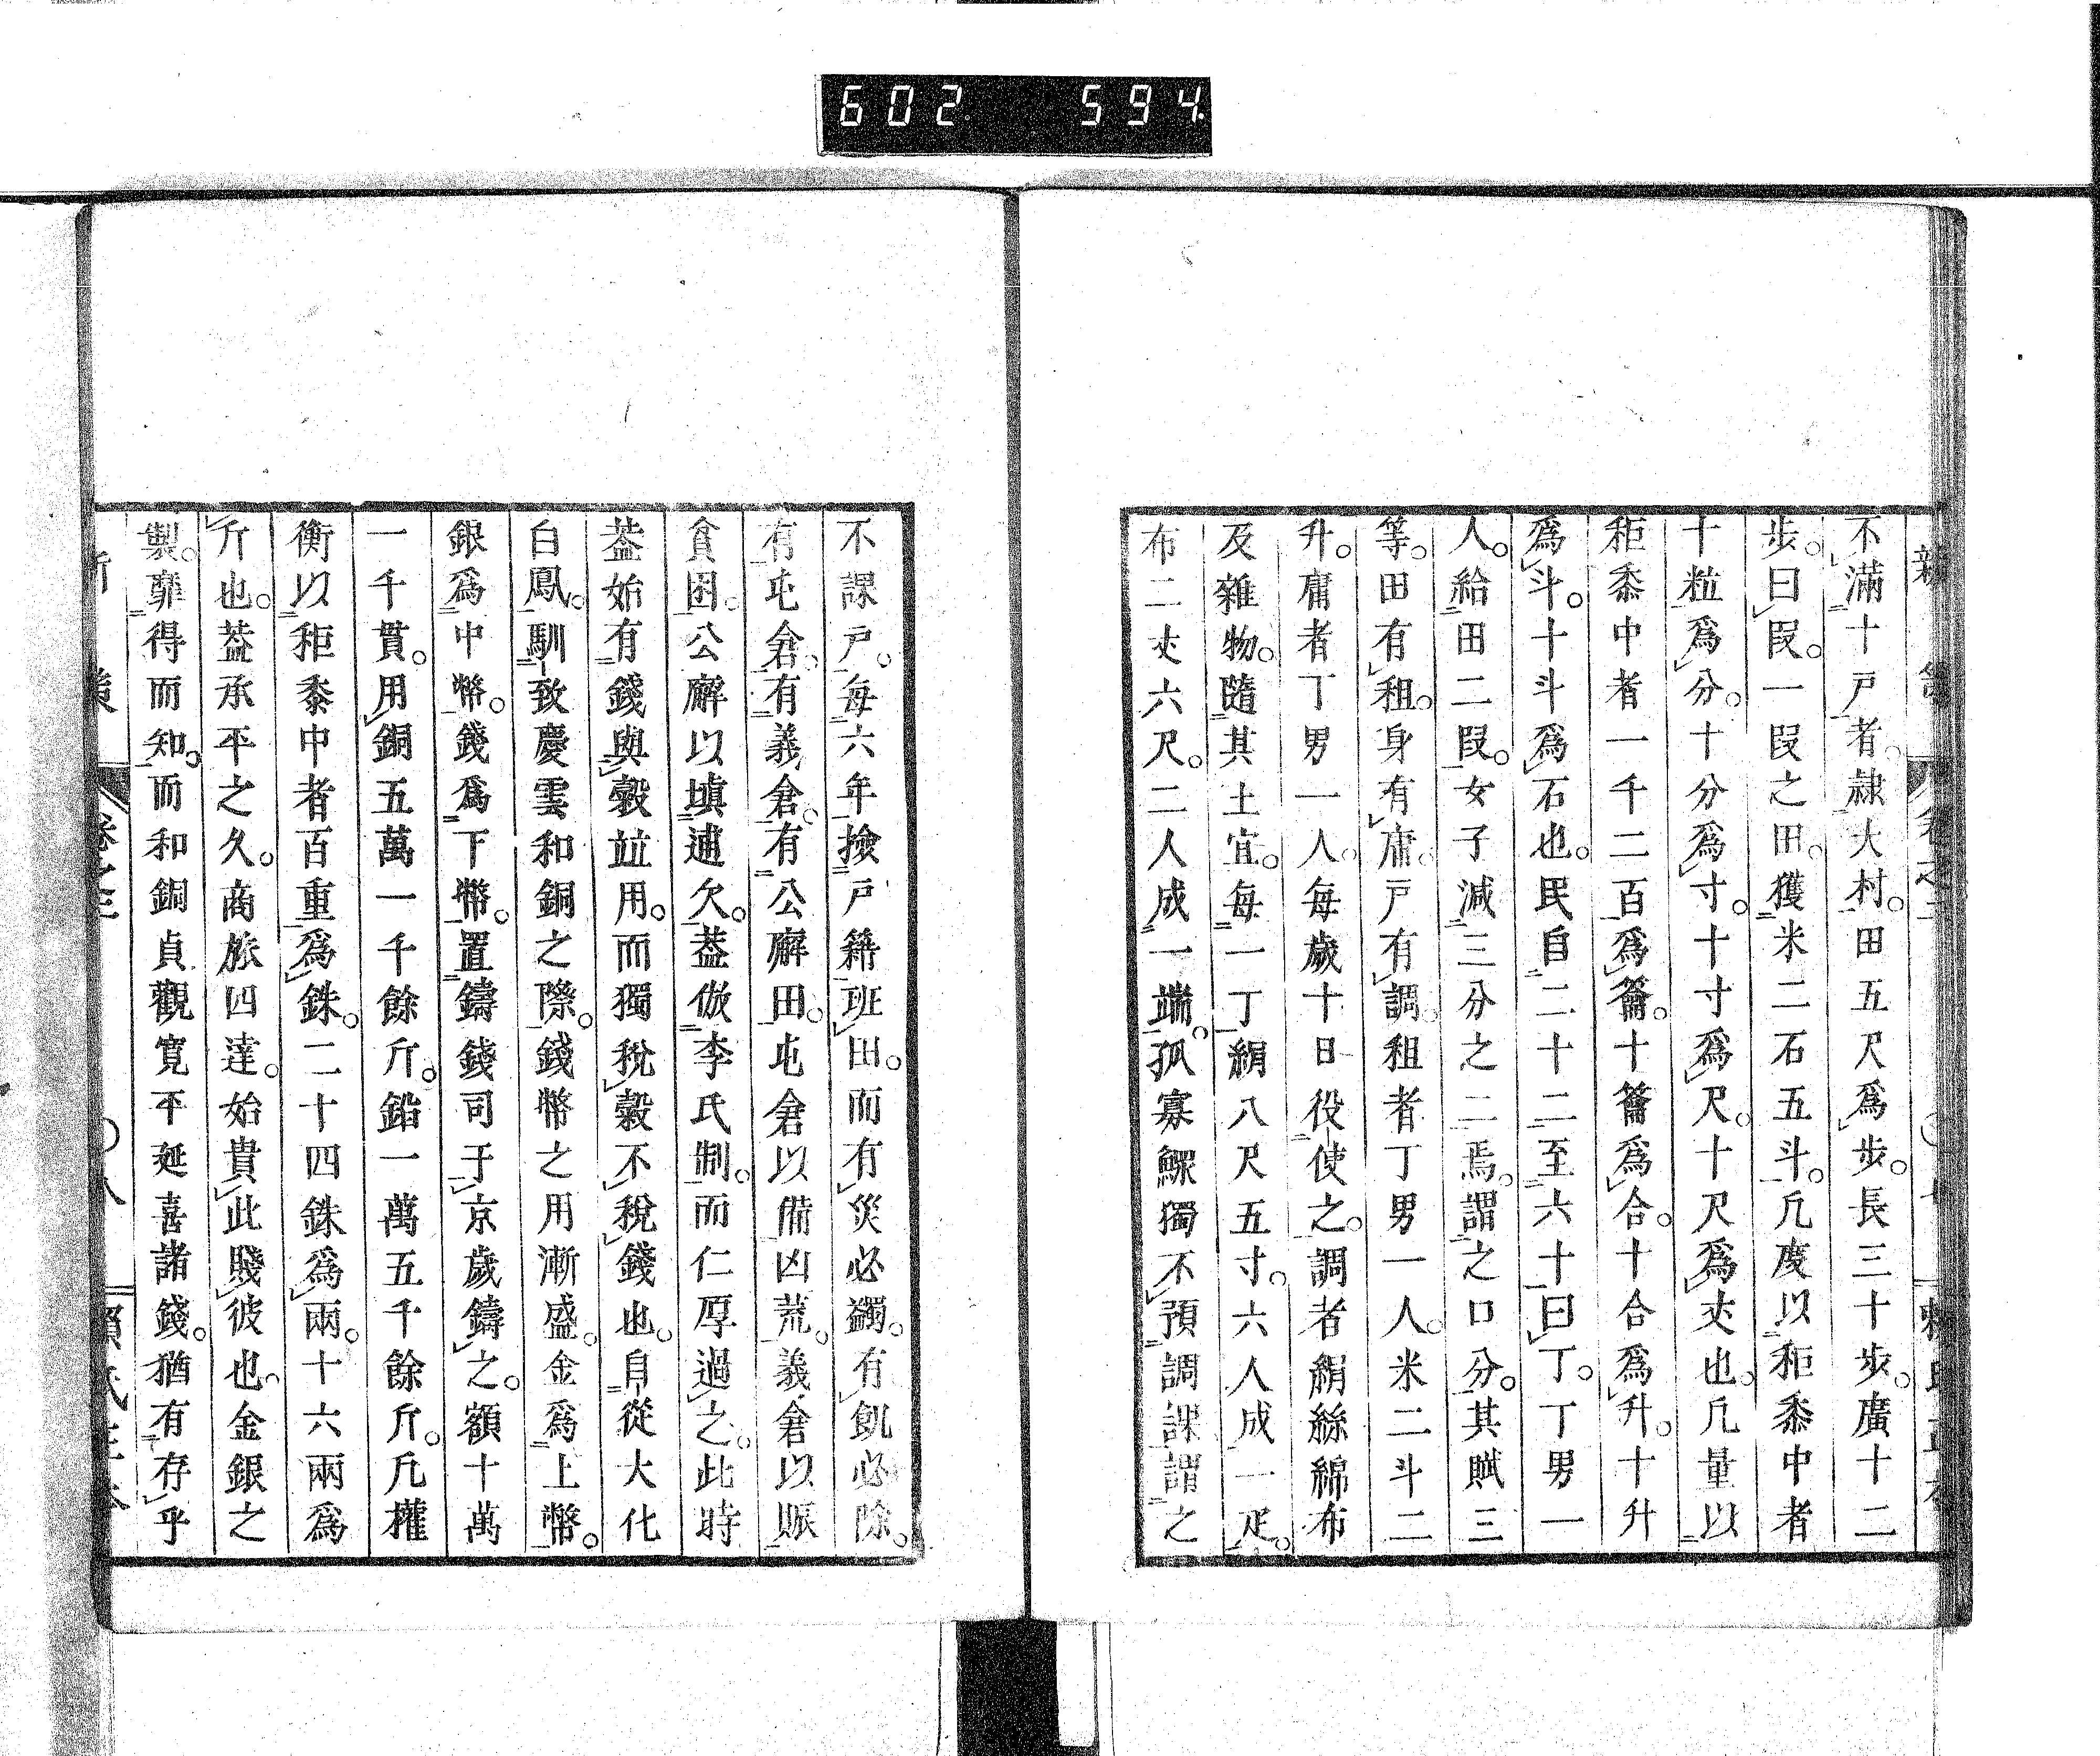 602 594
不滿十戸者。隷大村。田五尺爲步。長三十步。廣十二
步。曰段。一段之田。獲米二石五斗。凢度以秬黍中者
十粒爲分。十分爲寸。十寸爲尺。十尺爲丈也。凢量以
秬黍中者一千二百爲籥。十籥爲合。十合爲升。十升
爲斗。十斗爲石也。民自二十二至六十曰丁。丁男一
人。給田二段。女子減三分之二焉。謂之口分。其賦三
等。田有租。身有庸。戸有調。租者丁男一人。米二斗二
升。庸者丁男一人。每歲十日役使之。調者絹絲綿布
及雜物。隨其土宜。每一丁絹八尺五寸。六人成一疋。
布二丈六尺。二人成一端。孤寡鰥獨不預調課謂之
不課戸。每六年撿戸籍班田。而有災必蠲。有飢必除。
有屯倉。有義倉。有公廨田。屯倉以備凶荒。義倉以賑
貧困。公廨以塡逋欠。葢倣李氏制。而仁厚過之。此時
葢始有錢與穀竝用。而獨稅穀不稅錢也。自從大化
白鳳。馴致慶雲和銅之際。錢幣之用漸盛。金爲上幣。
銀爲中幣。錢爲下幣。置鑄錢司于京歲鑄之。額十萬
一千貫。用銅五萬一千餘斤。鉛一萬五千餘斤。凢權
衡以秬黍中者百重爲銖。二十四銖爲兩。十六兩爲
斤也。葢承平之久。商旅四達。始貴此賤彼也。金銀之
製。靡得而知。而和銅貞觀寬平延喜諸錢。猶有存乎